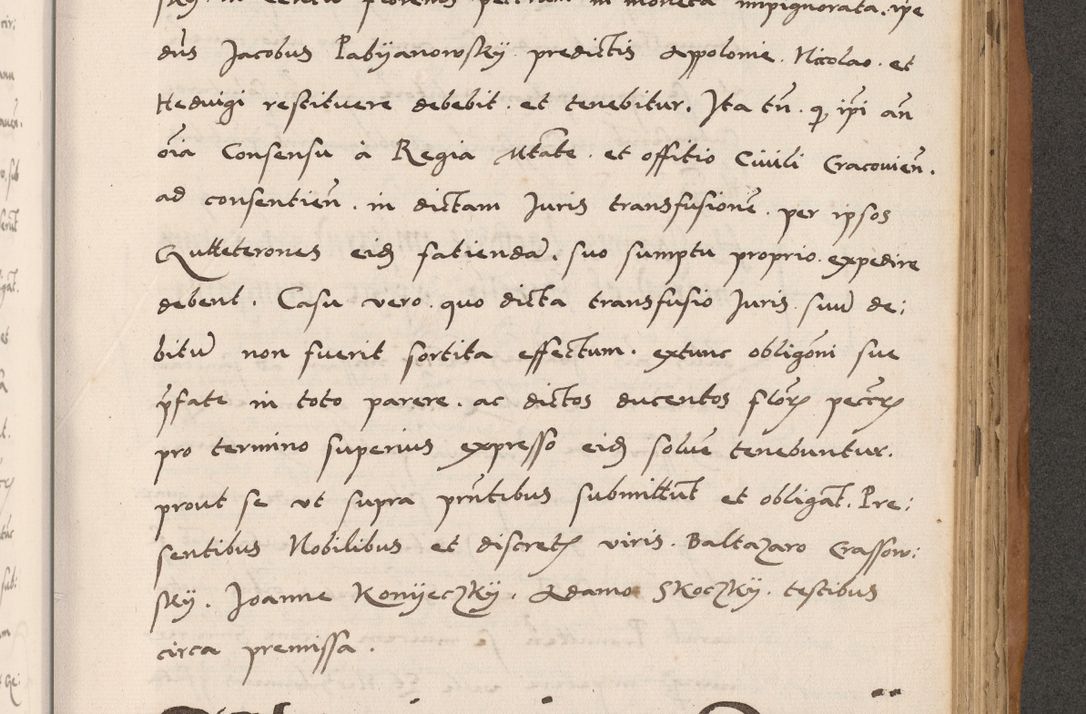 sky. in centū florenos peccuniarum in moneta impignorata. ipse
dn̄s Jacobus Pabyanowsky predictis Appolonie. Nicolao. et
Heduigi restituere debebit. et tenebitur. Ita tn̄. q ip̄i an̄
oīa Consensū a Regia Mtate. et offitio Ciuili Cracouien̄.
ad consentien̄. in dictam Juris transfusionē. per ipsos
Qulteterones eid̄ fatiendā. suo sumptu proprio. expedire
debent. Casu vero. quo dicta transfusio Juris suū de:
bitū non fuerit sortita effectum. extunc obligōni sue
p̄fate in toto parere. ac dictos ducentos flor̄ pecc̄
pro termino superius expresso eid̄ solvē tenebuntur.
prout se ut supra pn̄tibus submittūt et obligāt. Pre:
sentibus Nobilibus et discretꝭ viris. Baltazaro Crassow:
sky. Joanne Konyeczky. Adamo Skoczky. testibus
circa premissa.